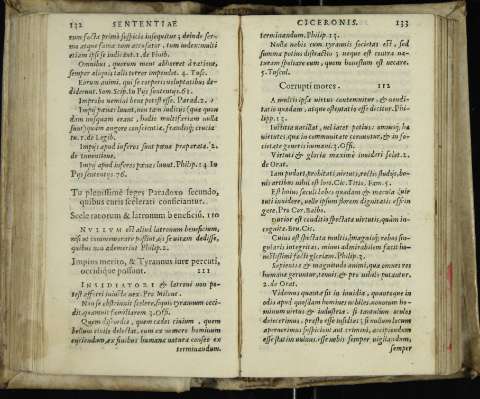 132 SENTENTIAE
rum facta primò suspicio insequitur; deinde ser-
mo atque fama: tum accusator, tum iudex: multi
etiam ipsi se indicant. 1. de Finib.
Omnibus, quorum mens abhorret à ratione,
semper aliquis talis terror impendet. 4. Tusc.
Eorum animi, qui se corporis voluptatibus de-
diderunt. Som. Scip. In Pijs sententys. 63.
Improbo nemini bene potest esse. Parad. 2.
Impij pœnas luunt, non tam iudicijs (quæ quon-
dam nusquam erant, hodie multifariam nulla
sunt) quàm angore conscientiæ, fraudisq; crucia-
tu. 1. de Legib.
Impijs apud inferos sunt pœnæ præparatæ. 2.
de Inuentione.
Impij apud inferos pœnas luunt. Philip. 14. In
Pijs sententys 76.
Tu plenissime leges Paradoxo secundo,
quibus curis scelerati conficiantur.
Sceleratorum & latronum beneficiũ. 110
NVLLVM est aliud latronum beneficium,
nisi vt commemorare possint, ijs se vitam dedisse,
quibus non ademerint Philip. 2.
Impius merito, & Tyrannus iure percuti,
occidique possunt. 111
INSIDIATORI & latroni non po-
test afferri iniusta nex. Pro Milone.
Non se obstrinxit scelere, siquis tyrannum occi-
dit, quamuis familiarem 3. Offi.
Quem discordiæ, quem cædes ciuium, quem
bellum ciuile delectat, eum ex numero hominum
eijciendum, ex finibus humanæ naturæ censeo ex
terminandum.
CICERONIS. 133
terminandum. Philip. 13.
Nulla nobis cum tyrannis societas est, sed
summa potius distractio; neque est contra na-
turam spoliare eum, quem honestum est necare.
5. Tuscul.
Corrupti mores. 112
A multis ipsa virtus contemnitur, & vendi-
tatio quædam, atque ostentatio esse dicitur. Phi-
lipp. 13.
Iustitia vacillat, vel iacet potius: omnesq; hæ
virtutes, quæ in communitate cernuntur, & in so-
cietate generis humani. 3. Offi.
Virtuti & gloriæ maximè inuideri solet. 2.
de Orat.
Iam pudori, probitati, virtuti, rectis studijs, bo-
nis artibus nihil est loci. Cic. Titio. Fam. 5.
Est huius sæculi labes quædam & macula vir-
tuti inuidere, velle ipsum florem dignitatis effrin-
gere. Pro Cor. Balbo.
Durior est conditio spectatæ virtutis, quàm in-
cognitæ. Bru. Cic.
Cuius est spectata multis, magnisq; rebus sin-
gularis integritas, minus admirabilem facit hu-
ius tristissimi facti gloriam. Philip. 3.
Sapientia & magnitudo animi, quæ omnes res
humanæ geruntur, tenuis, & pro nihilo putantur.
2. de Orat.
Videmus quanta sit in inuidia, quantoque in
odio apud quosdam homines nobiles, nouorum ho-
minum virtus & industria. si tantulum oculos
deiecerimus, præsto esse insidias; si nullum locum
aperuerimus suspicioni aut crimini, accipiendum
esse statim vulnus. esse nobis semper vigilandum,
semper